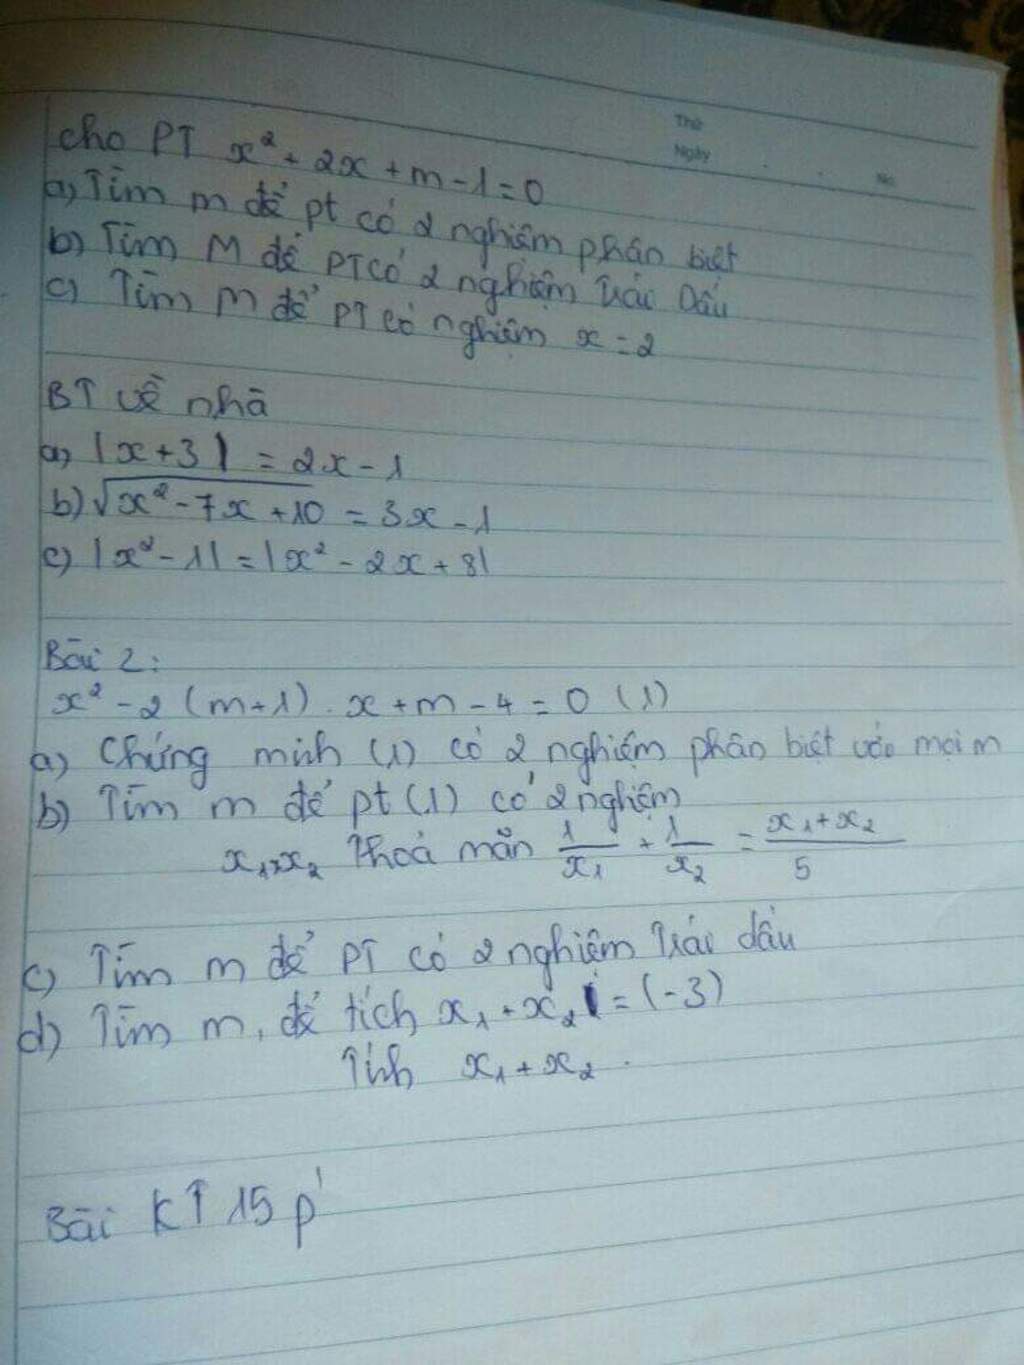 Thứ
Ngày
No.
Cho PT x² + 2x + m - 1 = 0
a) Tìm m để pt có 2 nghiệm phân biệt
b) Tìm M để PT có 2 nghiệm trái Dấu
c) Tìm M để PT có nghiệm x = 2
BT về nhà
a) |x + 3| = 2x - 1
b) √x² - 7x + 10 = 3x - 1
c) |x² - 1| = |x² - 2x + 8|
Bài 2:
x² - 2 (m+1) . x + m - 4 = 0 (1)
a) Chứng minh (1) có 2 nghiệm phân biệt với mọi m
b) Tìm m để pt (1) có 2 nghiệm
x₁, x₂ Thoả mãn 1/x₁ + 1/x₂ = x₁ + x₂/5
c) Tìm m để PT có 2 nghiệm trái dấu
d) Tìm m, để tích x₁ . x₂ = (-3)
Tính x₁ + x₂ .
Bài KT 15 p'